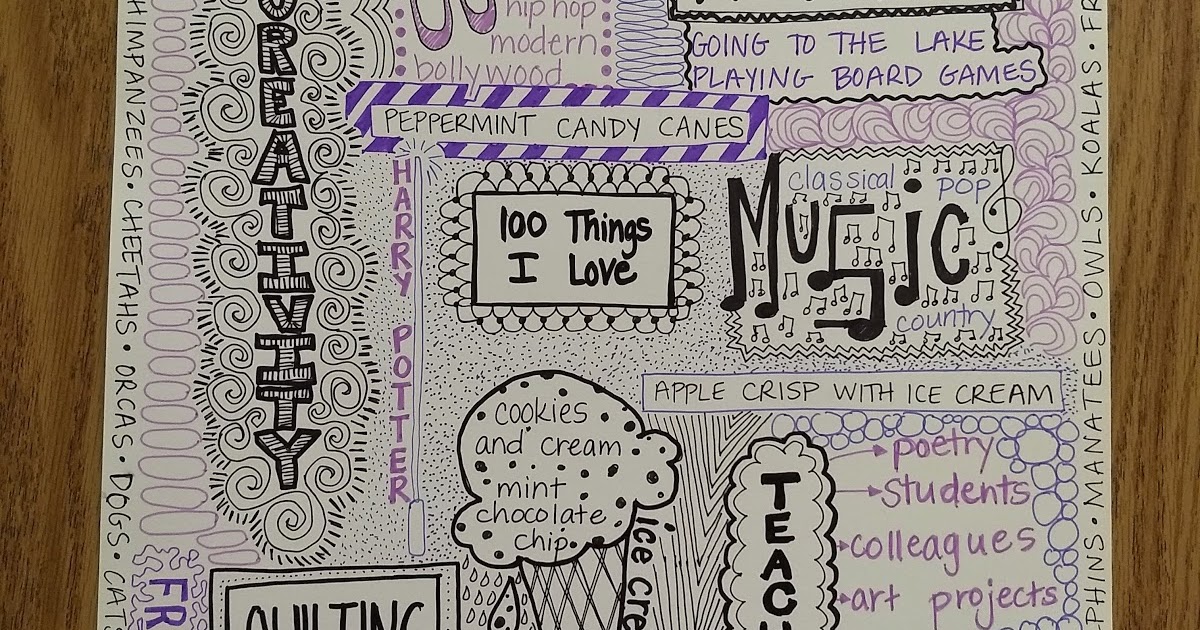 CREATIVITY
hip hop
modern
bollywood
GOING TO THE LAKE
PLAYING BOARD GAMES
PEPPERMINT CANDY CANES
HARRY POTTER
100 Things
I Love
Music
classical
pop
country
APPLE CRISP WITH ICE CREAM
cookies
and cream
mint
chocolate
chip
Ice Cre
TEAC
poetry
students
colleagues
art projects
QUILTING
FR
HIMPANZEES · CHEETAHS · ORCAS · DOGS · CATS
PHINS · MANATEES · OWLS · KOALAS · FR